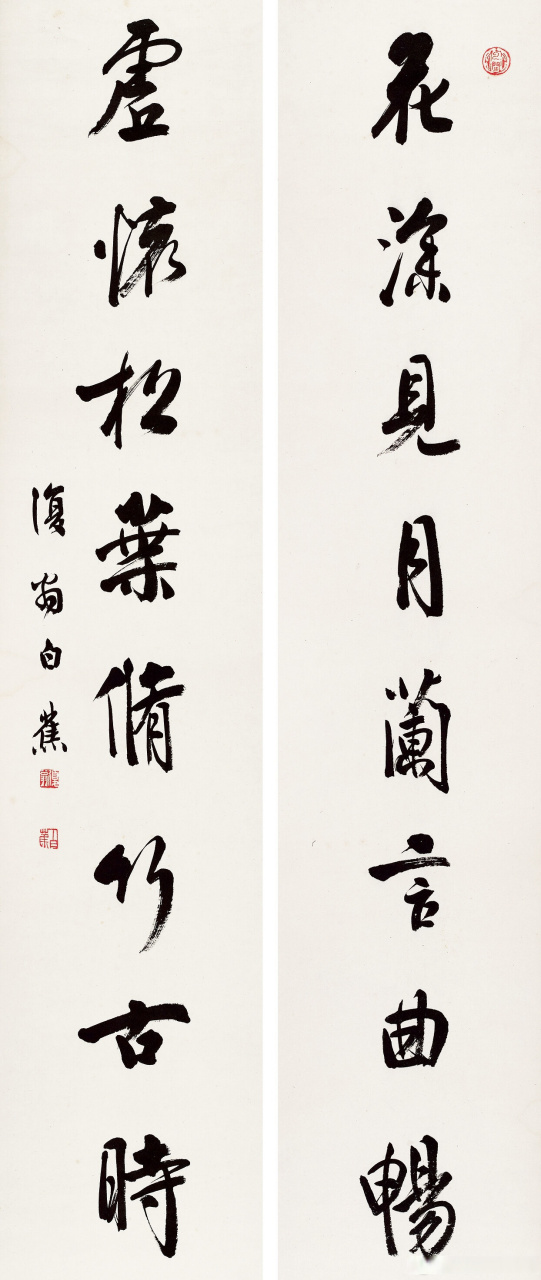 花深見月蘭言曲暢
虛懷松葉脩竹古時
復翁白蕉